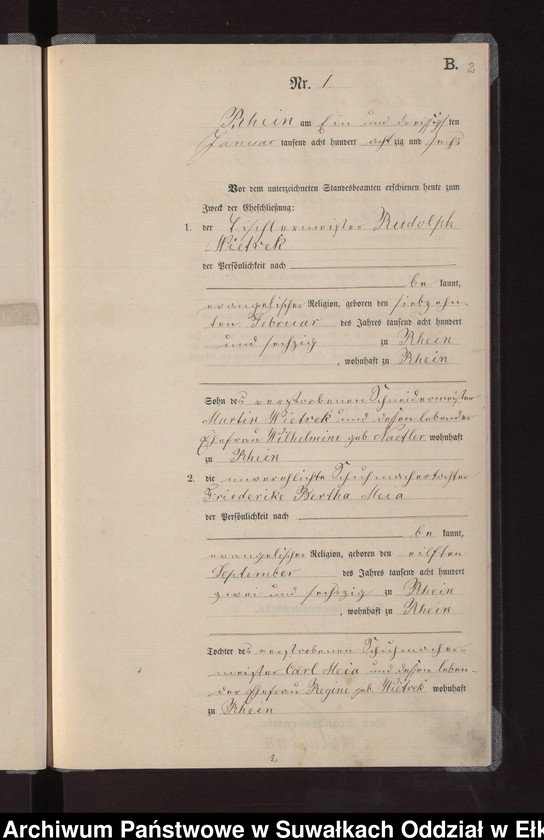 B. 2
Nr. 1
Rhein am Ein und dreißigsten
Januar tausend acht hundert achtzig und sechs
Vor dem unterzeichneten Standesbeamten erschienen heute zum
Zweck der Eheschließung:
1. der Tischlermeister Rudolph
Wietrek
der Persönlichkeit nach
be kannt,
evangelischer Religion, geboren den siebzehn-
ten Februar des Jahres tausend acht hundert
und sechzig zu Rhein
, wohnhaft zu Rhein
Sohn des verstorbenen Schneidermeister
Martin Wietrek und dessen lebender
Ehefrau Wilhelmine geb. wohnhaft
zu Rhein
2. die unverehlichte Schuhmachertochter
Friederike Bertha Meia
der Persönlichkeit nach
be kannt,
evangelischer Religion, geboren den eilften
September des Jahres tausend acht hundert
zwei und sechszig zu Rhein
, wohnhaft zu Rhein
Tochter des verstorbenen Schuhmacher-
meister Carl Meia und dessen leben-
der Ehefrau Regine geb. Wietrek wohnhaft
zu Rhein
Archiwum Państwowe w Suwałkach Oddział w Ełk